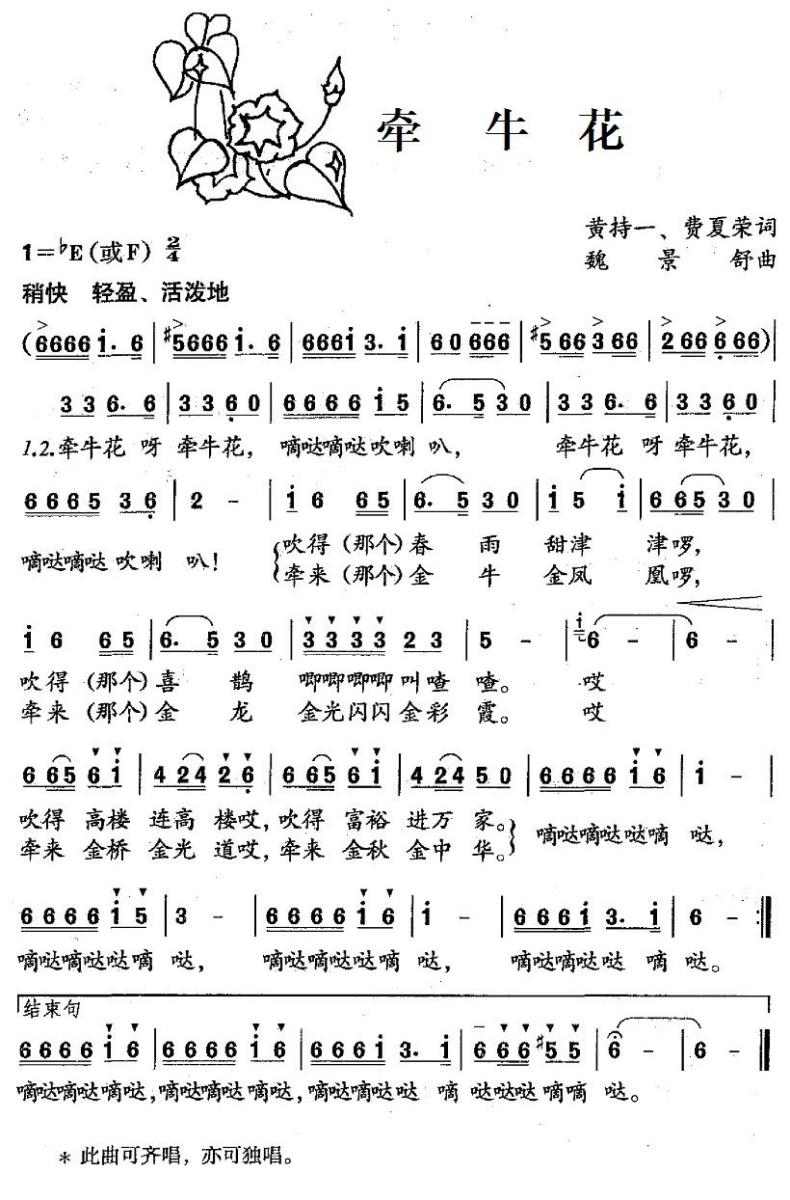 牵牛花
黄持一、费夏荣词
1=♭E(或F) 2/4
魏景舒曲
稍快 轻盈、活泼地
(6666 i. 6 | #5666 i. 6 | 666i 3. i | 60 666 | #5 66 3 66 | 2 66 6 66)
3 3 6. 6 | 3 3 6 0 | 6 6 6 6 i 5 | 6. 5 3 0 | 3 3 6. 6 | 3 3 6 0 |
1.2.牵牛花 呀 牵牛花, 嘀哒嘀哒吹喇 叭, 牵牛花 呀 牵牛花,
6 6 6 5 3 6 | 2 - | i 6 6 5 | 6. 5 3 0 | i 5 i | 6 6 5 3 0 |
嘀哒嘀哒 吹喇 叭! 吹得 (那个) 春 雨 甜津 津啰,
牵来 (那个) 金 牛 金凤 凰啰,
i 6 6 5 | 6. 5 3 0 | 3 3 3 3 2 3 | 5 - | i 6 - | 6 - |
吹得 (那个) 喜 鹊 唧唧唧唧 叫喳 喳。 哎
牵来 (那个) 金 龙 金光闪闪 金彩 霞。 哎
6 6 5 6 i | 4 2 4 2 6 | 6 6 5 6 i | 4 2 4 5 0 | 6 6 6 6 i 6 | i - |
吹得 高楼 连高 楼哎, 吹得 富裕 进万 家。 嘀哒嘀哒哒嘀 哒,
牵来 金桥 金光 道哎, 牵来 金秋 金中 华。
6 6 6 6 i 5 | 3 - | 6 6 6 6 i 6 | i - | 6 6 6 i 3. i | 6 - :||
嘀哒嘀哒哒嘀 哒, 嘀哒嘀哒哒嘀 哒, 嘀哒嘀哒哒 嘀 哒。
结束句
6 6 6 6 i 6 | 6 6 6 6 i 6 | 6 6 6 i 3. i | 6 6 6 #5 5 | 6 - | 6 - ||
嘀哒嘀哒嘀哒, 嘀哒嘀哒嘀哒, 嘀哒嘀哒哒 嘀 哒哒哒嘀嘀 哒。
* 此曲可齐唱,亦可独唱。